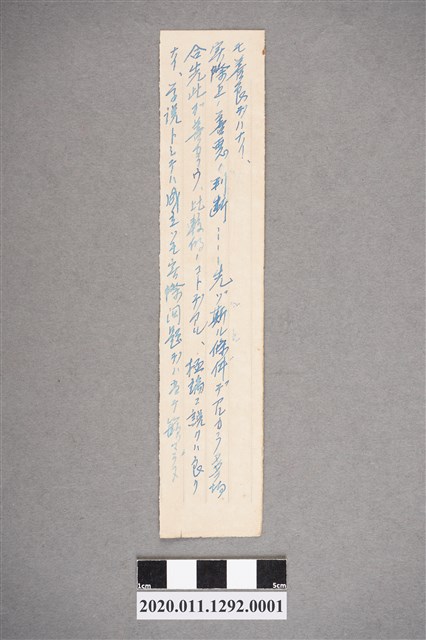 七善良デハナイ、
実際上ノ善悪ノ判断……先ヅ斯ル條件デアルカラ其場
合先此が善カラウ、比較的ノコトデアル、極論ヲ説クハ良ク
ナイ、学説トシテハ成立ツモ実際問題デハ
1cm
5cm
2020.011.1292.0001